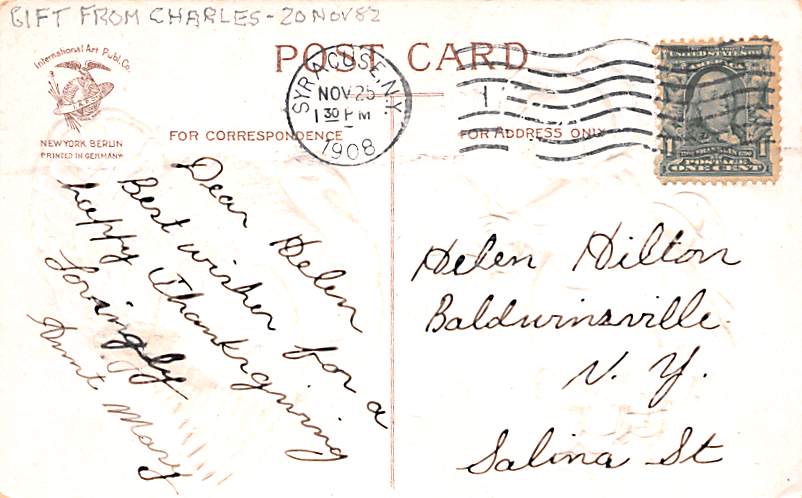 GIFT FROM CHARLES - 20 NOV 82
POST CARD
International Art Publ. Co.
NEW YORK BERLIN
PRINTED IN GERMANY
FOR CORRESPONDENCE
FOR ADDRESS ONLY
SYRACUSE, N.Y.
NOV 25
1 30 PM
1908
UNITED STATES OF
AMERICA
POSTAGE
ONE CENT
Dear Helen
Best wishes for a
happy Thanksgiving
Lovingly
Aunt Mary
Helen Hilton
Baldwinsville
N. Y.
Salina St